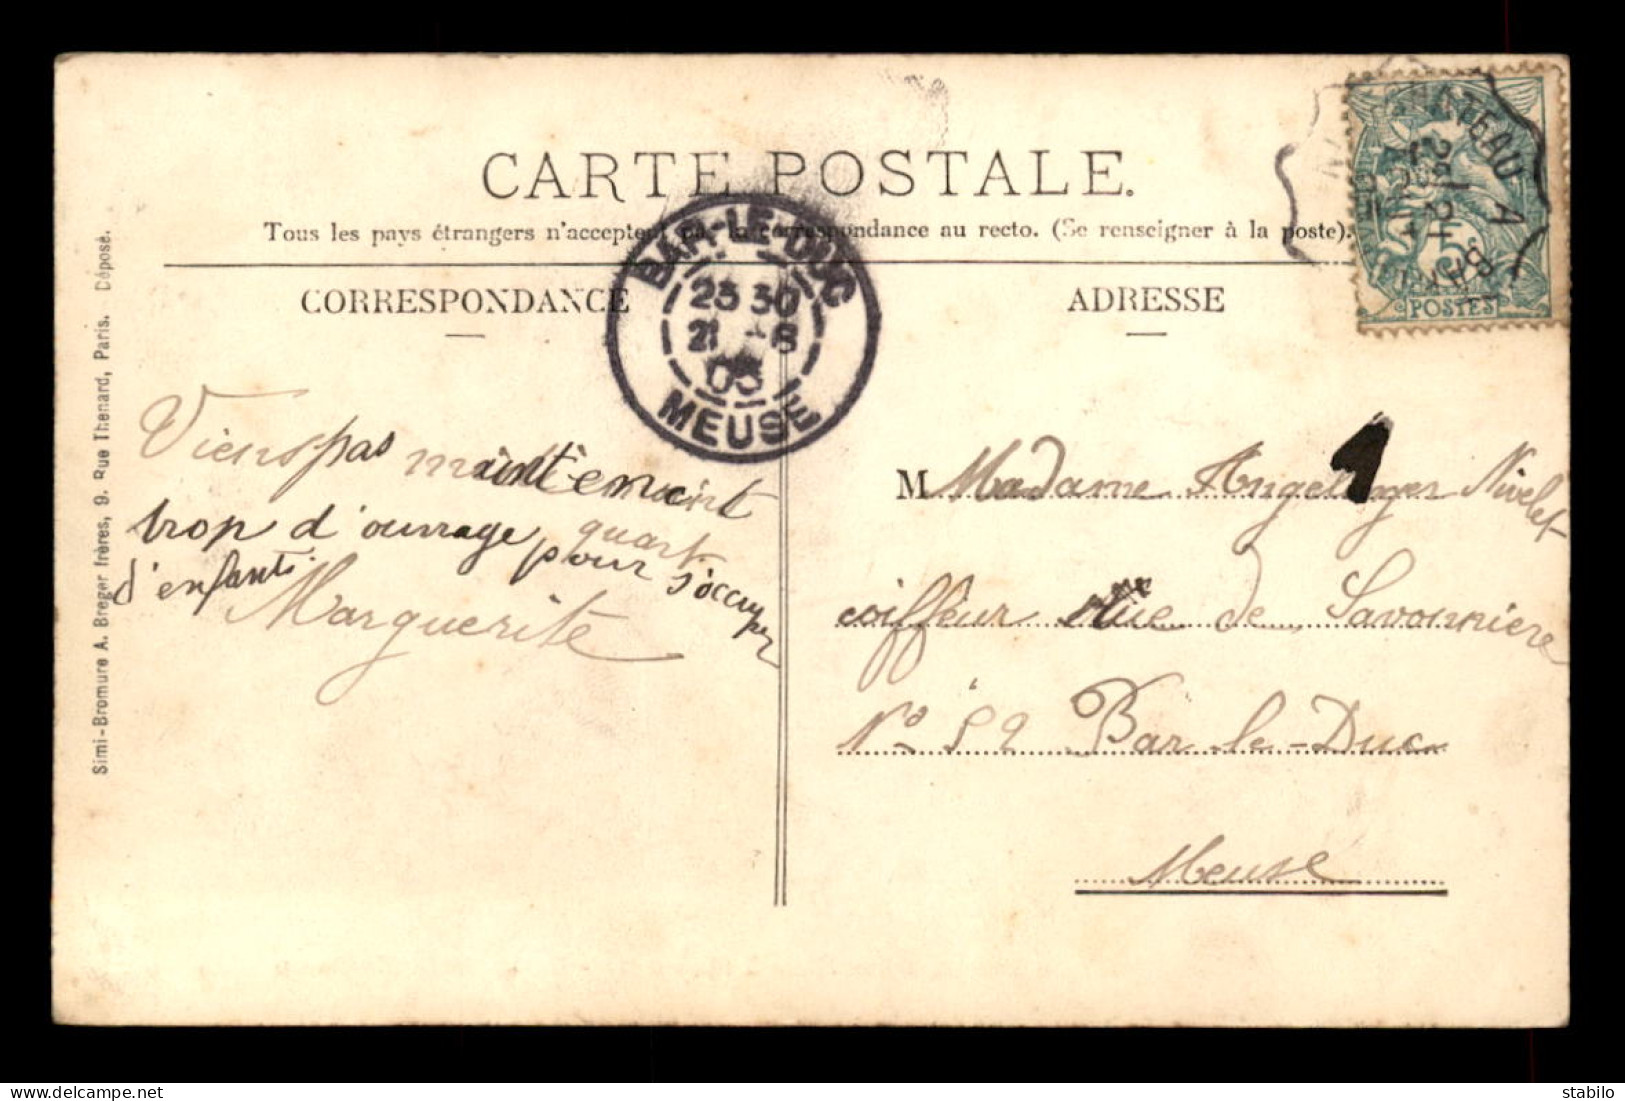 CARTE POSTALE.
Tous les pays étrangers n'acceptent pas la correspondance au recto. (Se renseigner à la poste).
CORRESPONDANCE
ADRESSE
BAR-LE-DUC
23 30
21 -8
05
MEUSE
POSTES
Viens pas maintenant
trop d'ouvrage quart
pour s'occuper
d'enfants.
Marguerite
1
M Madame Nivelet
coiffeur rue de Savonniere
N° 52 Bar le-Duc
Meuse
Simi-Bromure A. Breger frères, 9. Rue Thenard, Paris. Déposé.
stabilo
www.delcampe.net